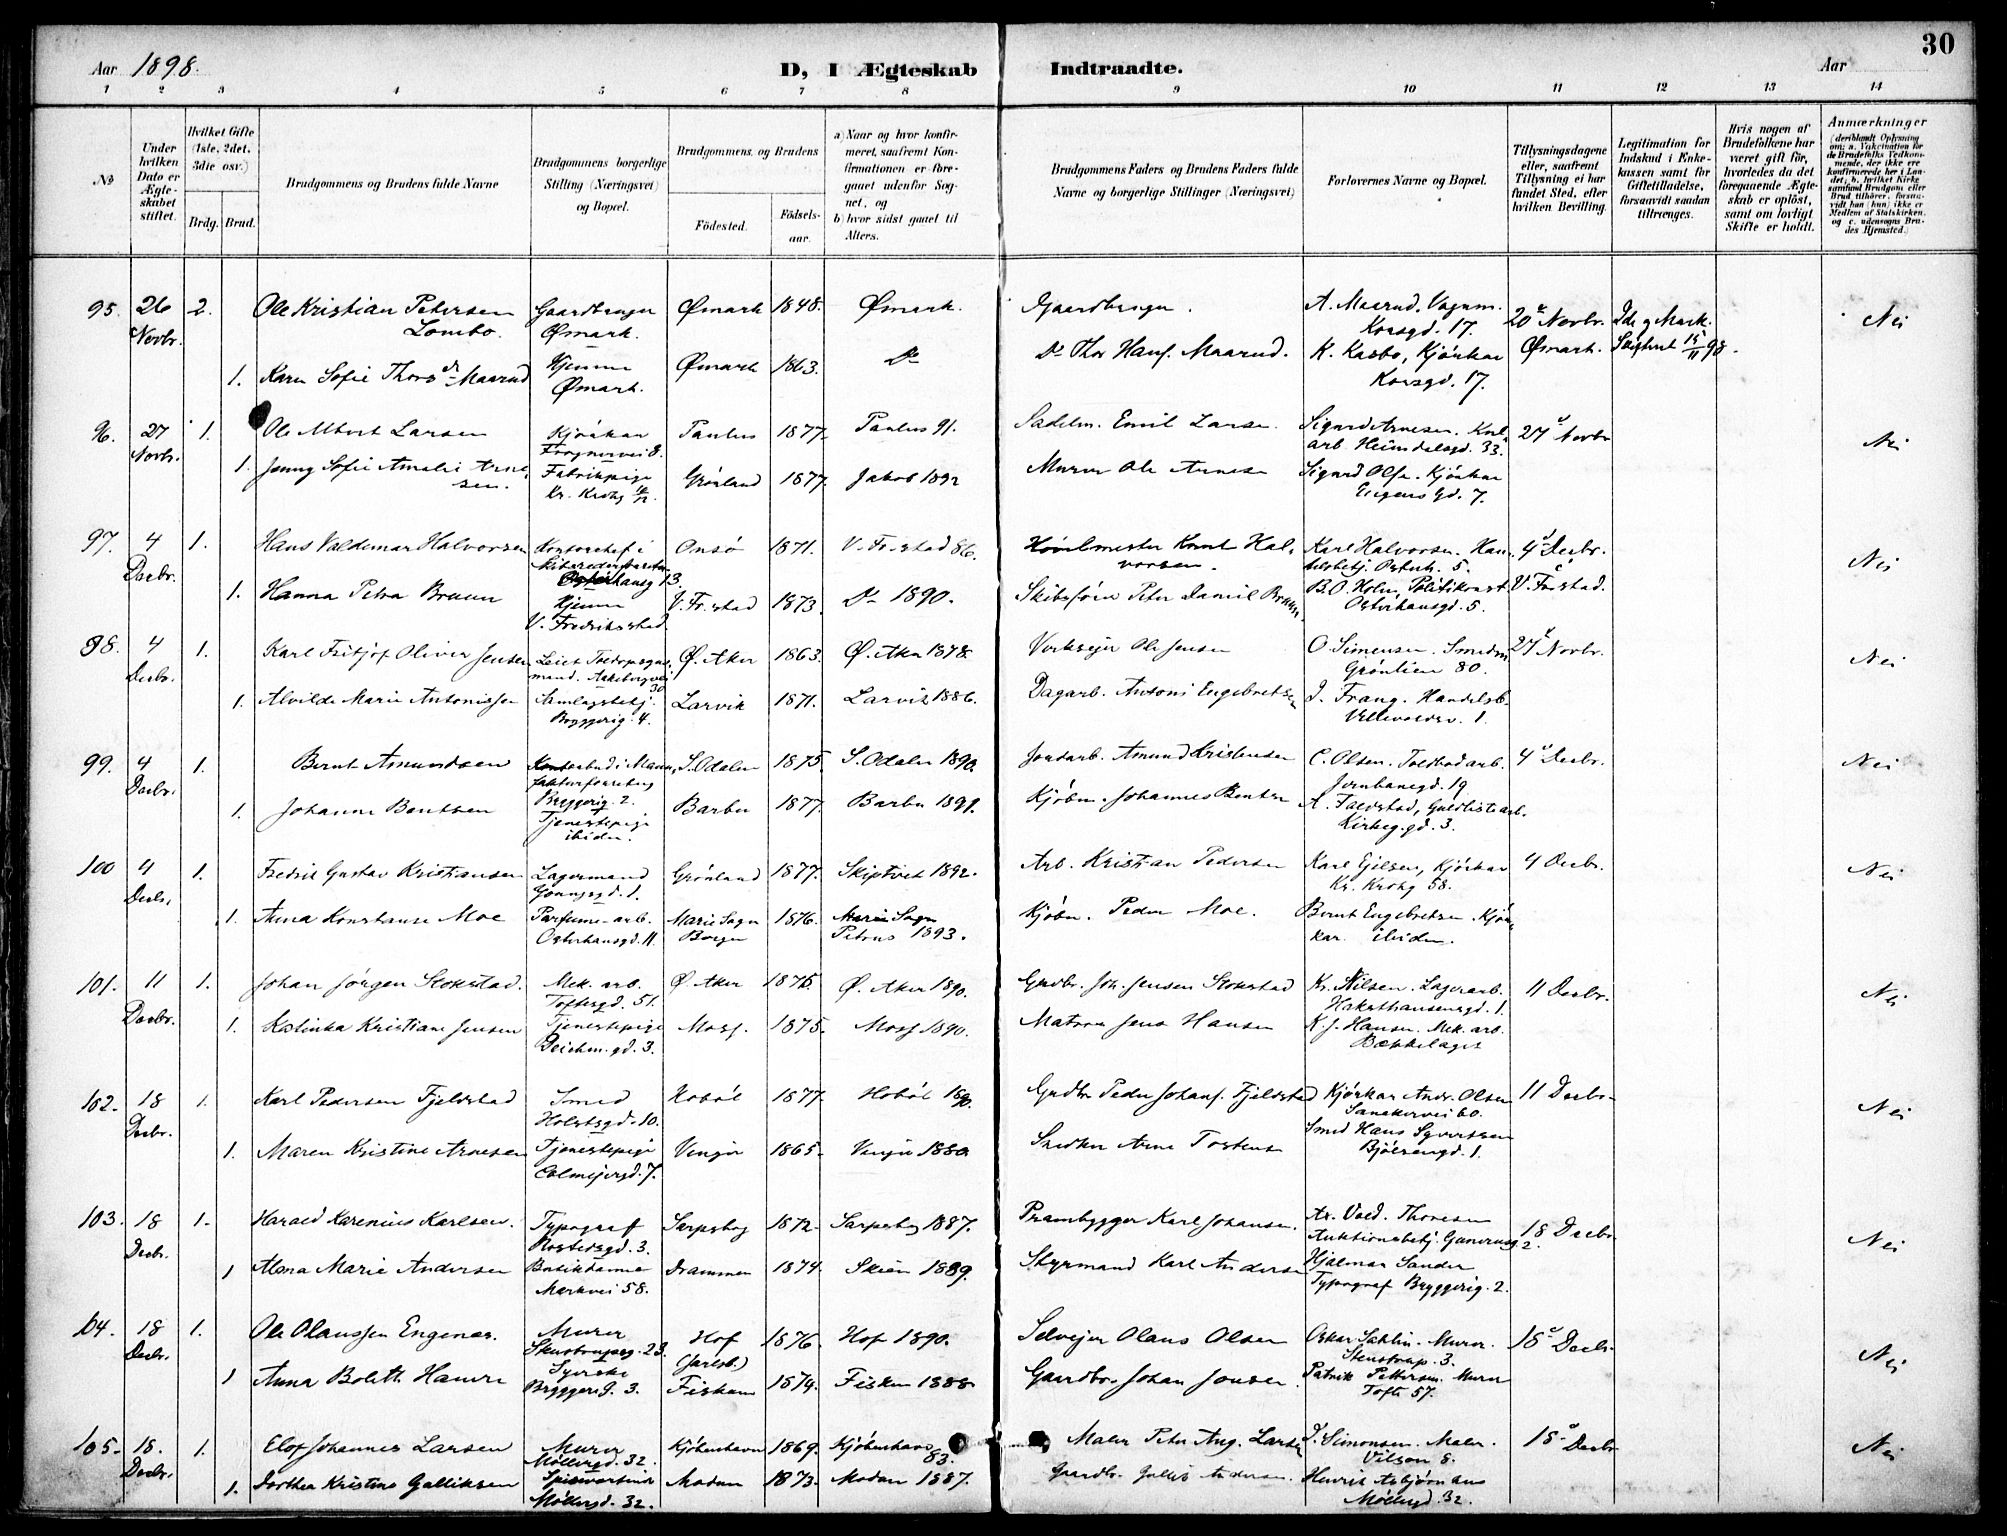 30
Aar 1898.
D, I Ægteskab Indtraadte.
Aar
1 2 3 4 5 6 7 8 9 10 11 12 13 14
No
Under hvilken Dato er Ægteskabet stiftet.
Hvilket Gifte (1ste, 2det, 3die osv.)
Brdg. Brud.
Brudgommens og Brudens fulde Navne
Brudgommens borgerlige Stilling (Næringsvei) og Bopæl.
Brudgommens og Brudens
Födested.
Födselsaar.
a) Naar og hvor konfirmeret, saafremt Konfirmationen er foregaaet udenfor Sognet, og
b) hvor sidst gaaet til Alters.
Brudgommens Faders og Brudens Faders fulde Navne og borgerlige Stillinger (Næringsvei)
Forlovernes Navne og Bopæl.
Tillysningsdagene eller, saafremt Tillysning ei har fundet Sted, efter hvilken Bevilling.
Legitimation for Indskud i Enkekassen samt for Giftetilladelse, forsaavidt saadan tiltrænges.
Hvis nogen af Brudefolkene har været gift för, hvorledes da det foregaaende Ægteskab er oplöst, samt om lovligt Skifte er holdt.
Anmærkninger
95. 26 Novbr. 2. Ole Kristian Petersen Lombo. Gaardbruger Ømark. Ømark 1848. Ømark. Gaardbruger. A. Maarud. Vognm. Korsgd. 17. 20 Novbr. Ømark. Nei
1. Karen Sofie Thorsdr. Maarud Hjemme Ømark. Ømark 1863. Do Do Thor Hans. Maarud. K. Kasbo, Kjörkar Korsgd. 17.
96. 27 Novbr. 1. Ole Albert Larsen Kjörkar Frognervei 8. Paulus 1877. Paulus 91. Sadelm. Emil Larsen. Sigurd Arnesen. arb. Heimdalsgd. 33. 27 Novbr Nei
1. Jenny Sofie Amalie Arnesen. Fabrikpige Kr. Krohg Grönland 1877. Jakob 1892 Murer Ole Arnesen Sigurd Olsen. Kjörkar Eugens gd. 7.
97. 4 Decbr. 1. Hans Valdemar Halvorsen Kontorchef i Onsö 1871. V. Fr.stad 86. Knut Halvorsen. Karl Halvorsen. Osterh. 5. 4 Decbr. V. Fr.stad. Nei
1. Hanna Petra Bruun Hjemme V. Fredriksstad. V. Fr.stad 1873. Do 1890. Skibsförer Peter Daniel Bruun B. O. Holm, Politikonst. Osterhausgd. 5.
98. 4 Decbr. 1. Karl Fritjof Oliver Jensen Ø. Aker 1863. Ø. Aker 1878. Ole Jensen O. Simensen. Smedm. Grönlien 80. 27 Novbr. Nei
1. Alvilde Marie Antonissen Samlagsbetj. Byggerig. 4. Larvik 1871. Larvik 1886. Dagarb. Antoni Engebretsen J. Frang. Handelsb. Ullevoldsv. 1.
99. 4 Decbr. 1. Bernt Amundsen Byggerig. 2. S. Odalen 1875. S. Odalen 1890. Jordarb. Amund Kristensen C. Olsen. Toldbodarb. Jernbanegd. 19 4 Decbr. Nei
1. Johanne Bentsen Tjenestepige ibiden. Barbu 1877. Barbu 1891. Kjöbm. Johannes Bentsen A. Faldstad, Guldlistearb. Kirkeg. gd. 3.
100 4 Decbr. 1. Fredrik Gustav Kristiansen Lagermand Grönland 1877. Skiptvet 1892. Arb. Kristian Pedersen Karl Eilsen, Kjörkar Kr. Krohg 58. 4 Decbr. Nei
1. Anna Konstanse Moe Parfume-arb. Osterhausgd. 11. 1876. Petrus 1893. Kjöbm. Peder Moe. Bernt Engebretsen. Kjörkar. ibiden.
101. 11 Decbr. 1. Johan Jörgen Stokstad. Mek. arb. Toftesgd. 51. Ø. Aker 1875. Ø. Aker 1890. Grdbr. Joh. Jensen Stokstad Kr. Nilsen. Lagerarb. Haksthausensgd. 1. 11 Decbr. Nei
1. Kolinka Kristiane Jensen Tjenestepige Deichm. gd. 3. Moss. 1875. Moss 1890. Matros Jens Hansen K. J. Hansen. Mek. arb. Bækkelaget
102. 18 Decbr. 1. Karl Pedersen Fjeldstad Smed Holstsgd. 10. Hoböl 1877. Hoböl 1890. Grdbr Peder Johans. Fjeldstad Kjörkar Andr. Olsen Sandakervei 60. 11 Decbr. Nei
1. Maren Kristine Arnesen Tjenestepige Colmejersgd. 7. Vingu 1865. Vingu 1880. Snedker Arne Torstensen Smed Hans Syvertsen Bjölsengd. 1.
103. 18 Decbr. 1. Harald Karenius Karlsen. Typograf Rostedsgd. 3. Sarpsborg 1872. Sarpsborg 1887. Prambygger Karl Johansen. Ax. Vald. Thoresen Auktionsbetj. 2. 18 Decbr. Nei
1 Alma Marie Andersen Butikdame Markvei 58. Drammen 1874. Skien 1889. Styrmand Karl Andersen Hjalmar Sander Typograf Byggerig. 2.
104. 18 Decbr. 1. Ole Olaussen Engenæs. Murer 23. Hof (Jarlsb.) 1876. Hof 1890. Selveier Olaus Olsen Oskar Sahlin. Murer. Stenstrup. 3. 18 Decbr. Nei
1 Anna Bolette Hansen Syerske Byggerig. 3. Fiskum 1874. Fiskum 1888. Gaardbr. Johan Jonsen. Patrik Pettersen. Murer Tofte 57.
105. 18. Decbr. 1. Elof Johannes Larsen Murer Möllergd. 32. Kjöbenhavn 1869. Kjöbenhavn 83. Maler Peter Aug. Larsen J. Simonsen. Maler. Vilsen 8. 18 Decbr Nei
1. Dorthea Kristine Gulliksen Möllergd. 32. Modum 1873. Modum 1887. Gaardbr. Gullik Andersen. Henrik Asbjörnsens Möllergd. 32.